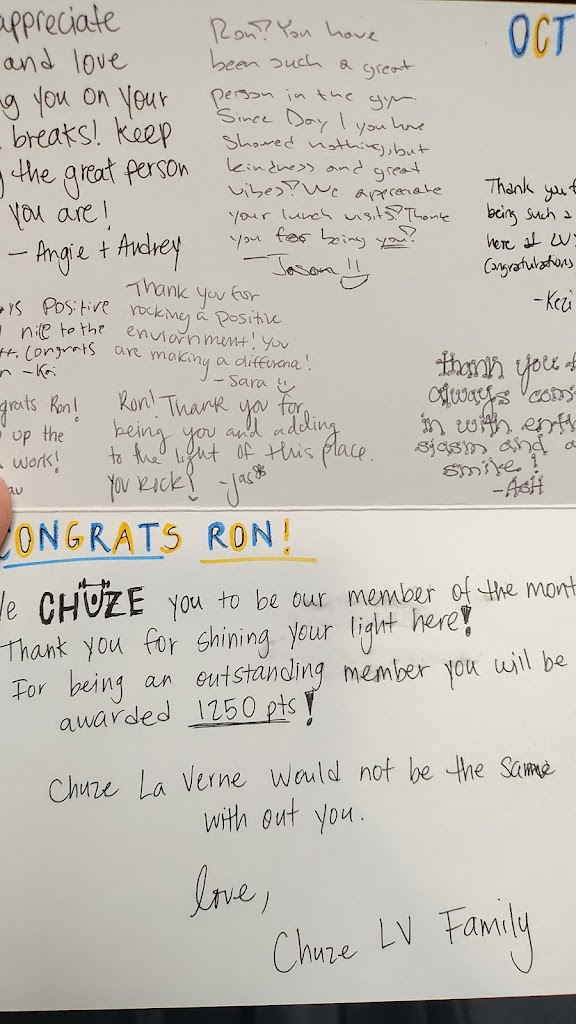 appreciate
and love
g you on your
breaks! keep
the great person
you are!
- Angie + Audrey
Ron! You have
been such a great
person in the gym.
Since Day 1 you have
showed nothing, but
kindness and great
vibes! We appreciate
your lunch visits! Thank
you for being you!
- Jason !!
OCT
Thank you f
being such a
here at LV
Congratulations
- Kezi
ys Positive
nice to the
congrats
n - Kai
Thank you for
rocking a positive
enviornment! You
are making a differenc!
- Sara
grats Ron!
up the
work!
Ron! Thank you for
being you and adding
to the light of this place.
You Rock! - jas*
thank you f
always com
in with enth
siasm and a
smile!
- AsH
CONGRATS RON!
We CHUZE you to be our member of the mont
Thank you for shining your light here!
For being an outstanding member you will be
awarded 1250 pts!
Chuze La Verne would not be the same
with out you.
love,
Chuze LV Family